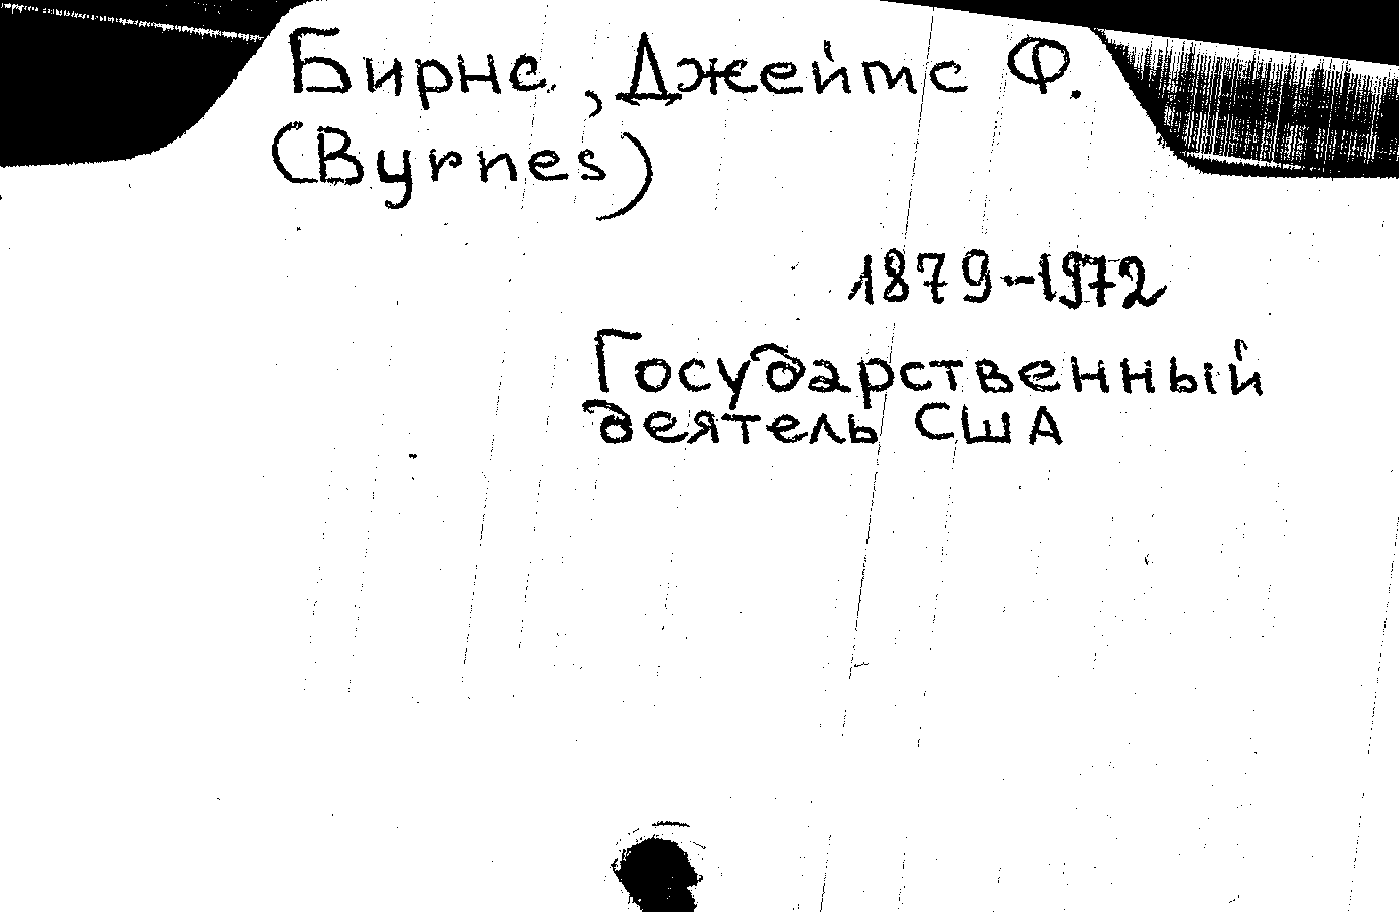 Бирнс, Джеймс Ф.
(Byrnes)
1879-1972
Государственный
деятель США